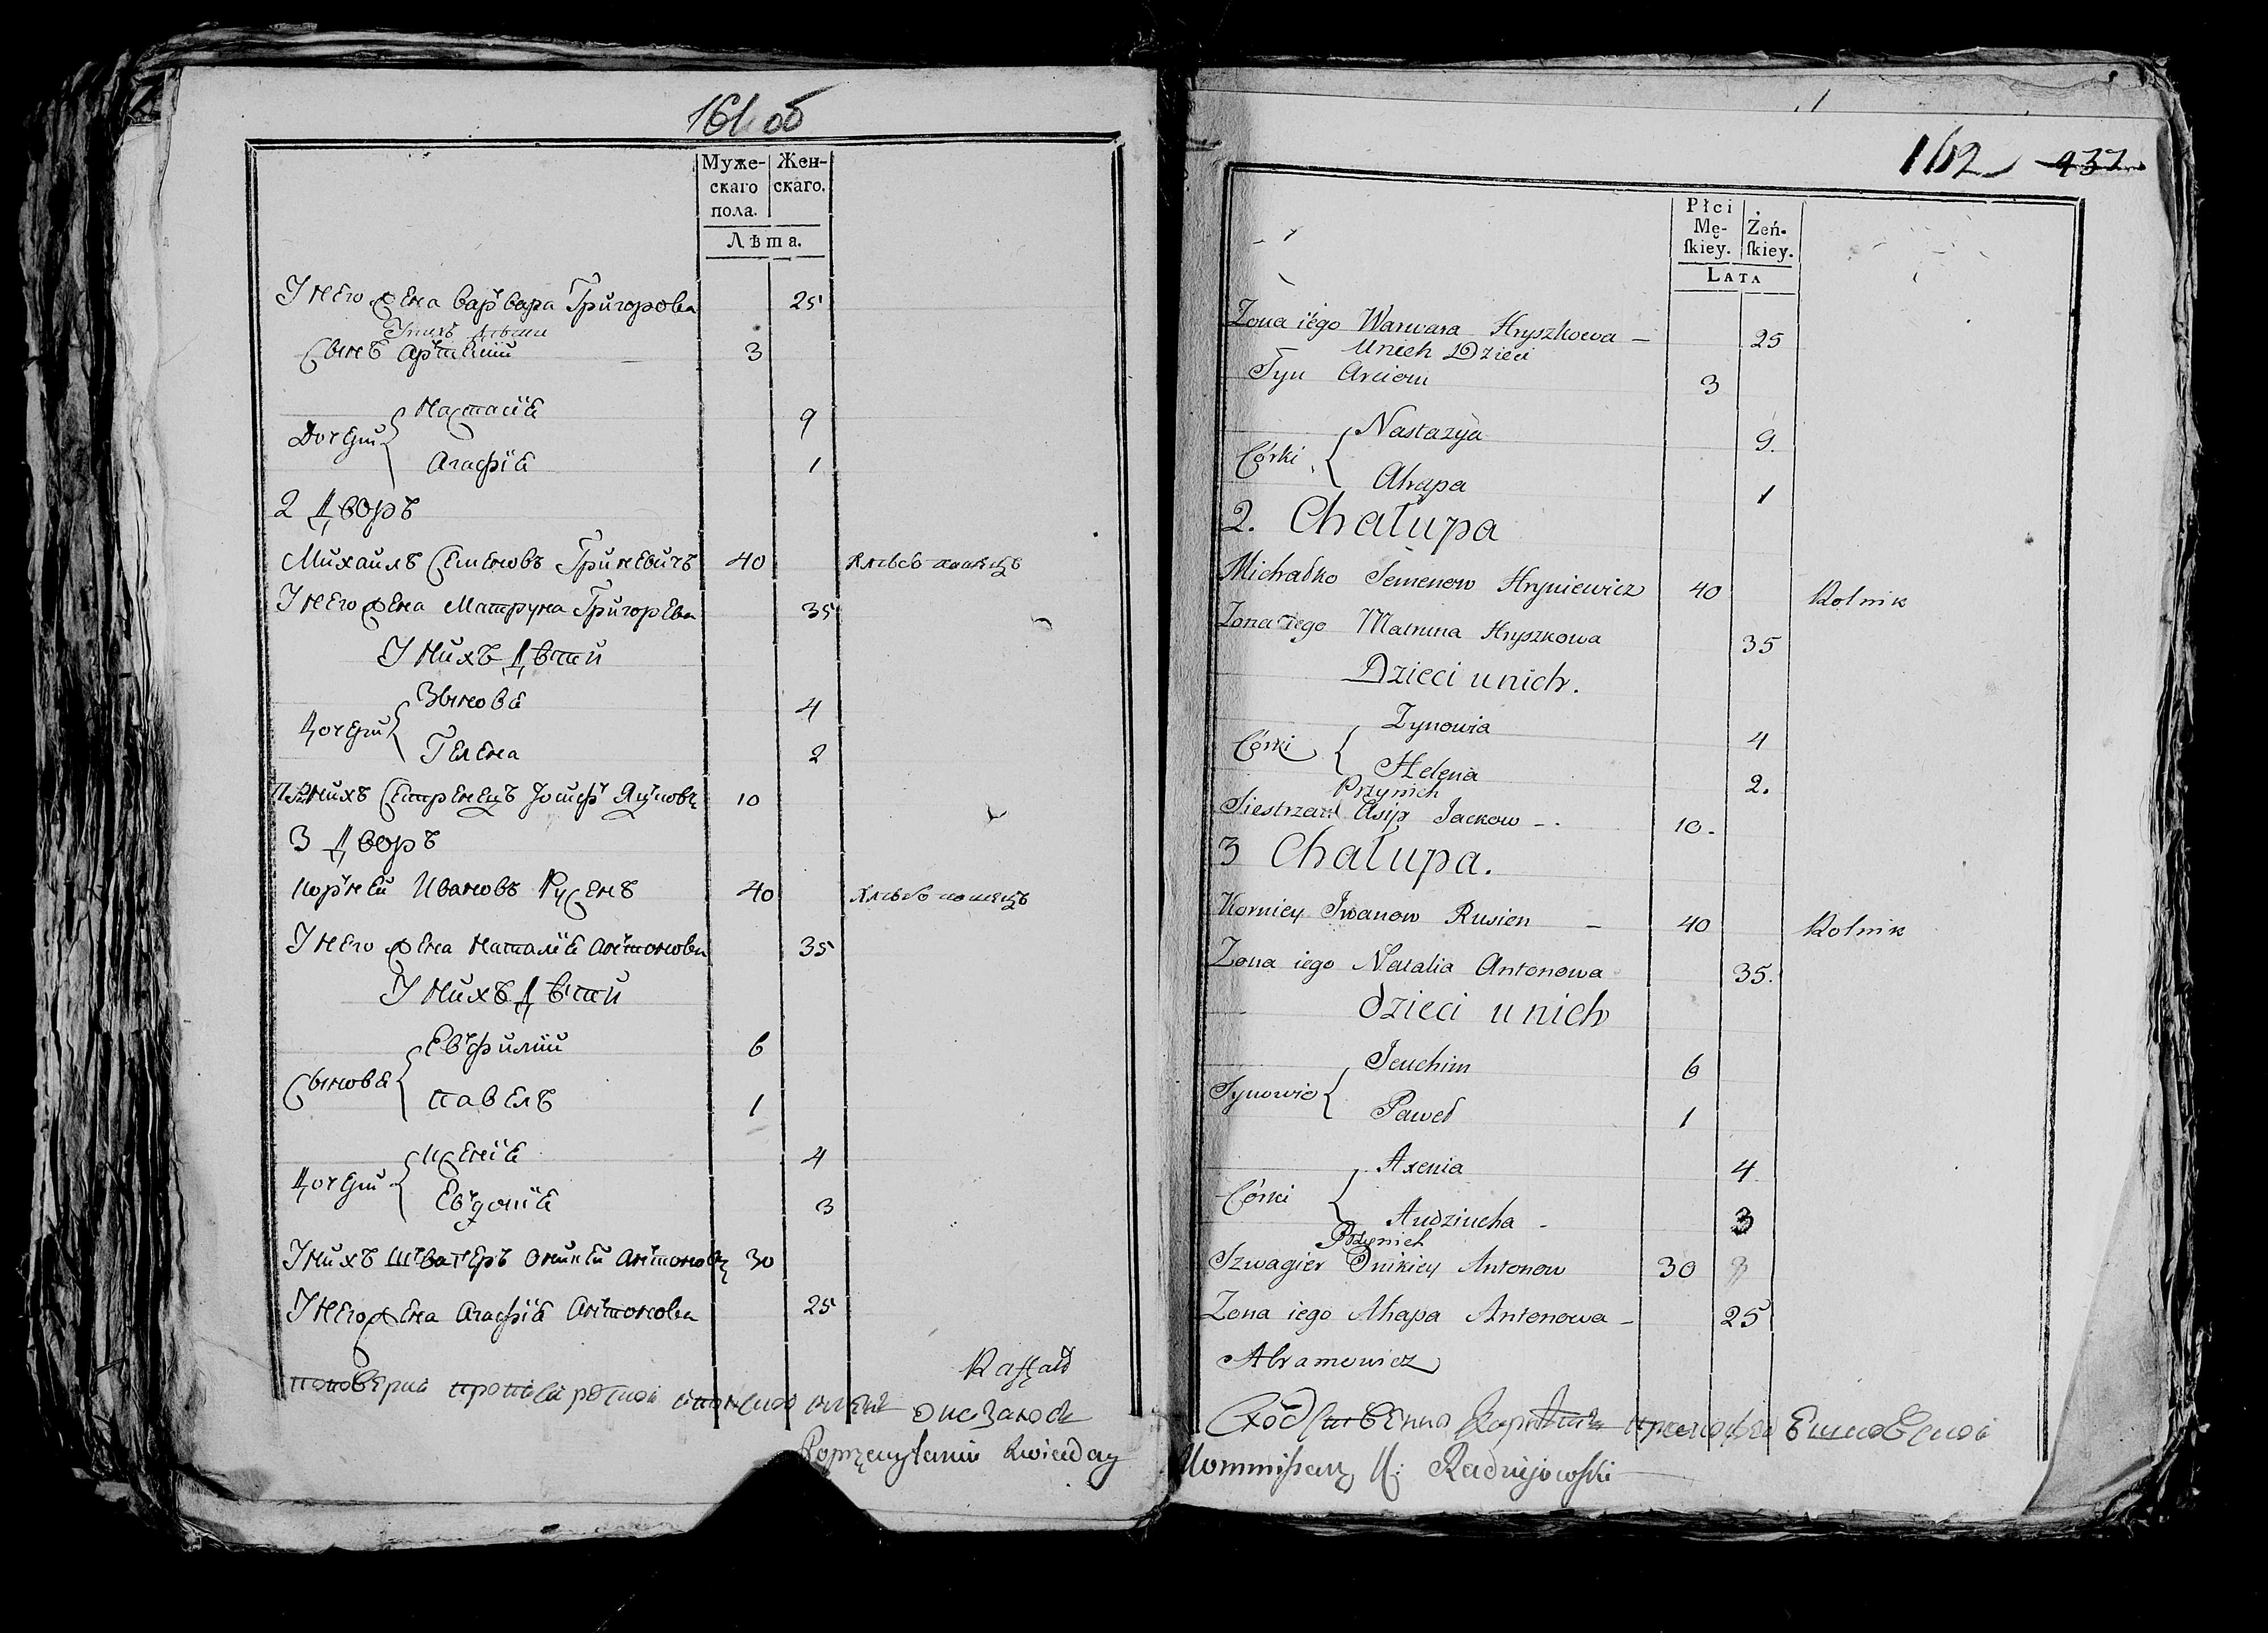 161 об
Муже-
скаго
пола.
Жен-
скаго.
Лѣта.
У него жена Варвара Григорова 25
У нихъ дѣти
Сынъ Артемій 3
Дочери { Настасія 9
Агафія 1
2 Дворъ
Михаилъ Семеновъ Гриневичъ 40 хлѣбопашецъ
У него жена Матруна Григорьева 35
У нихъ дѣти
Дочери { Зыновія 4
Гелена 2
При нихъ сестренецъ Іосифъ Яцковъ 10
3 Дворъ
Корней Ивановъ Русенъ 40 хлѣбопашецъ
У него жена Наталія Антонова 35
У нихъ дѣти
Сыновя { Евфимій 6
Павелъ 1
Дочери { Ксенія 4
Евдокія 3
У нихъ швагеръ Оникей Антоновъ 30
У него жена Агафія Антонова 25
162 437
Płci
Mę-
ſkiey.
Żeń-
ſkiey.
LATA
Zona iego Warwara Hryszkowa 25
U nich Dzieci
Syn Arciom 3
Córki { Nastazya 9.
Ahapa 1
2. Chałupa
Michałko Semenow Hryniewicz 40 Rolnik
Zona iego Matruna Hryszkowa 35
Dzieci u nich.
Córki { Zynowia 4
Helena 2.
Przy nich
Siestrzan Asip Jackow 10.
3 Chałupa.
Korniey Iwanow Rusien 40 Rolnik
Zona iego Natalia Antonowa 35.
dzieci u nich
Synowie { Jeuchim 6
Paweł 1
Córki { Axenia 4
Audziucha 3
Przy nich
Szwagier Onikiey Antonow 30
Zona iego Ahapa Antonowa 25
Abramowicz